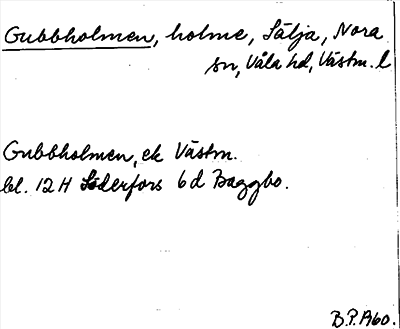 Gubbholmen, holme, Sälja, Nora
sn, Våla hd, Västm. l
Gubbholmen, ek Västm.
bl. 12H Söderfors 6d Baggbo.
B.P. A60.